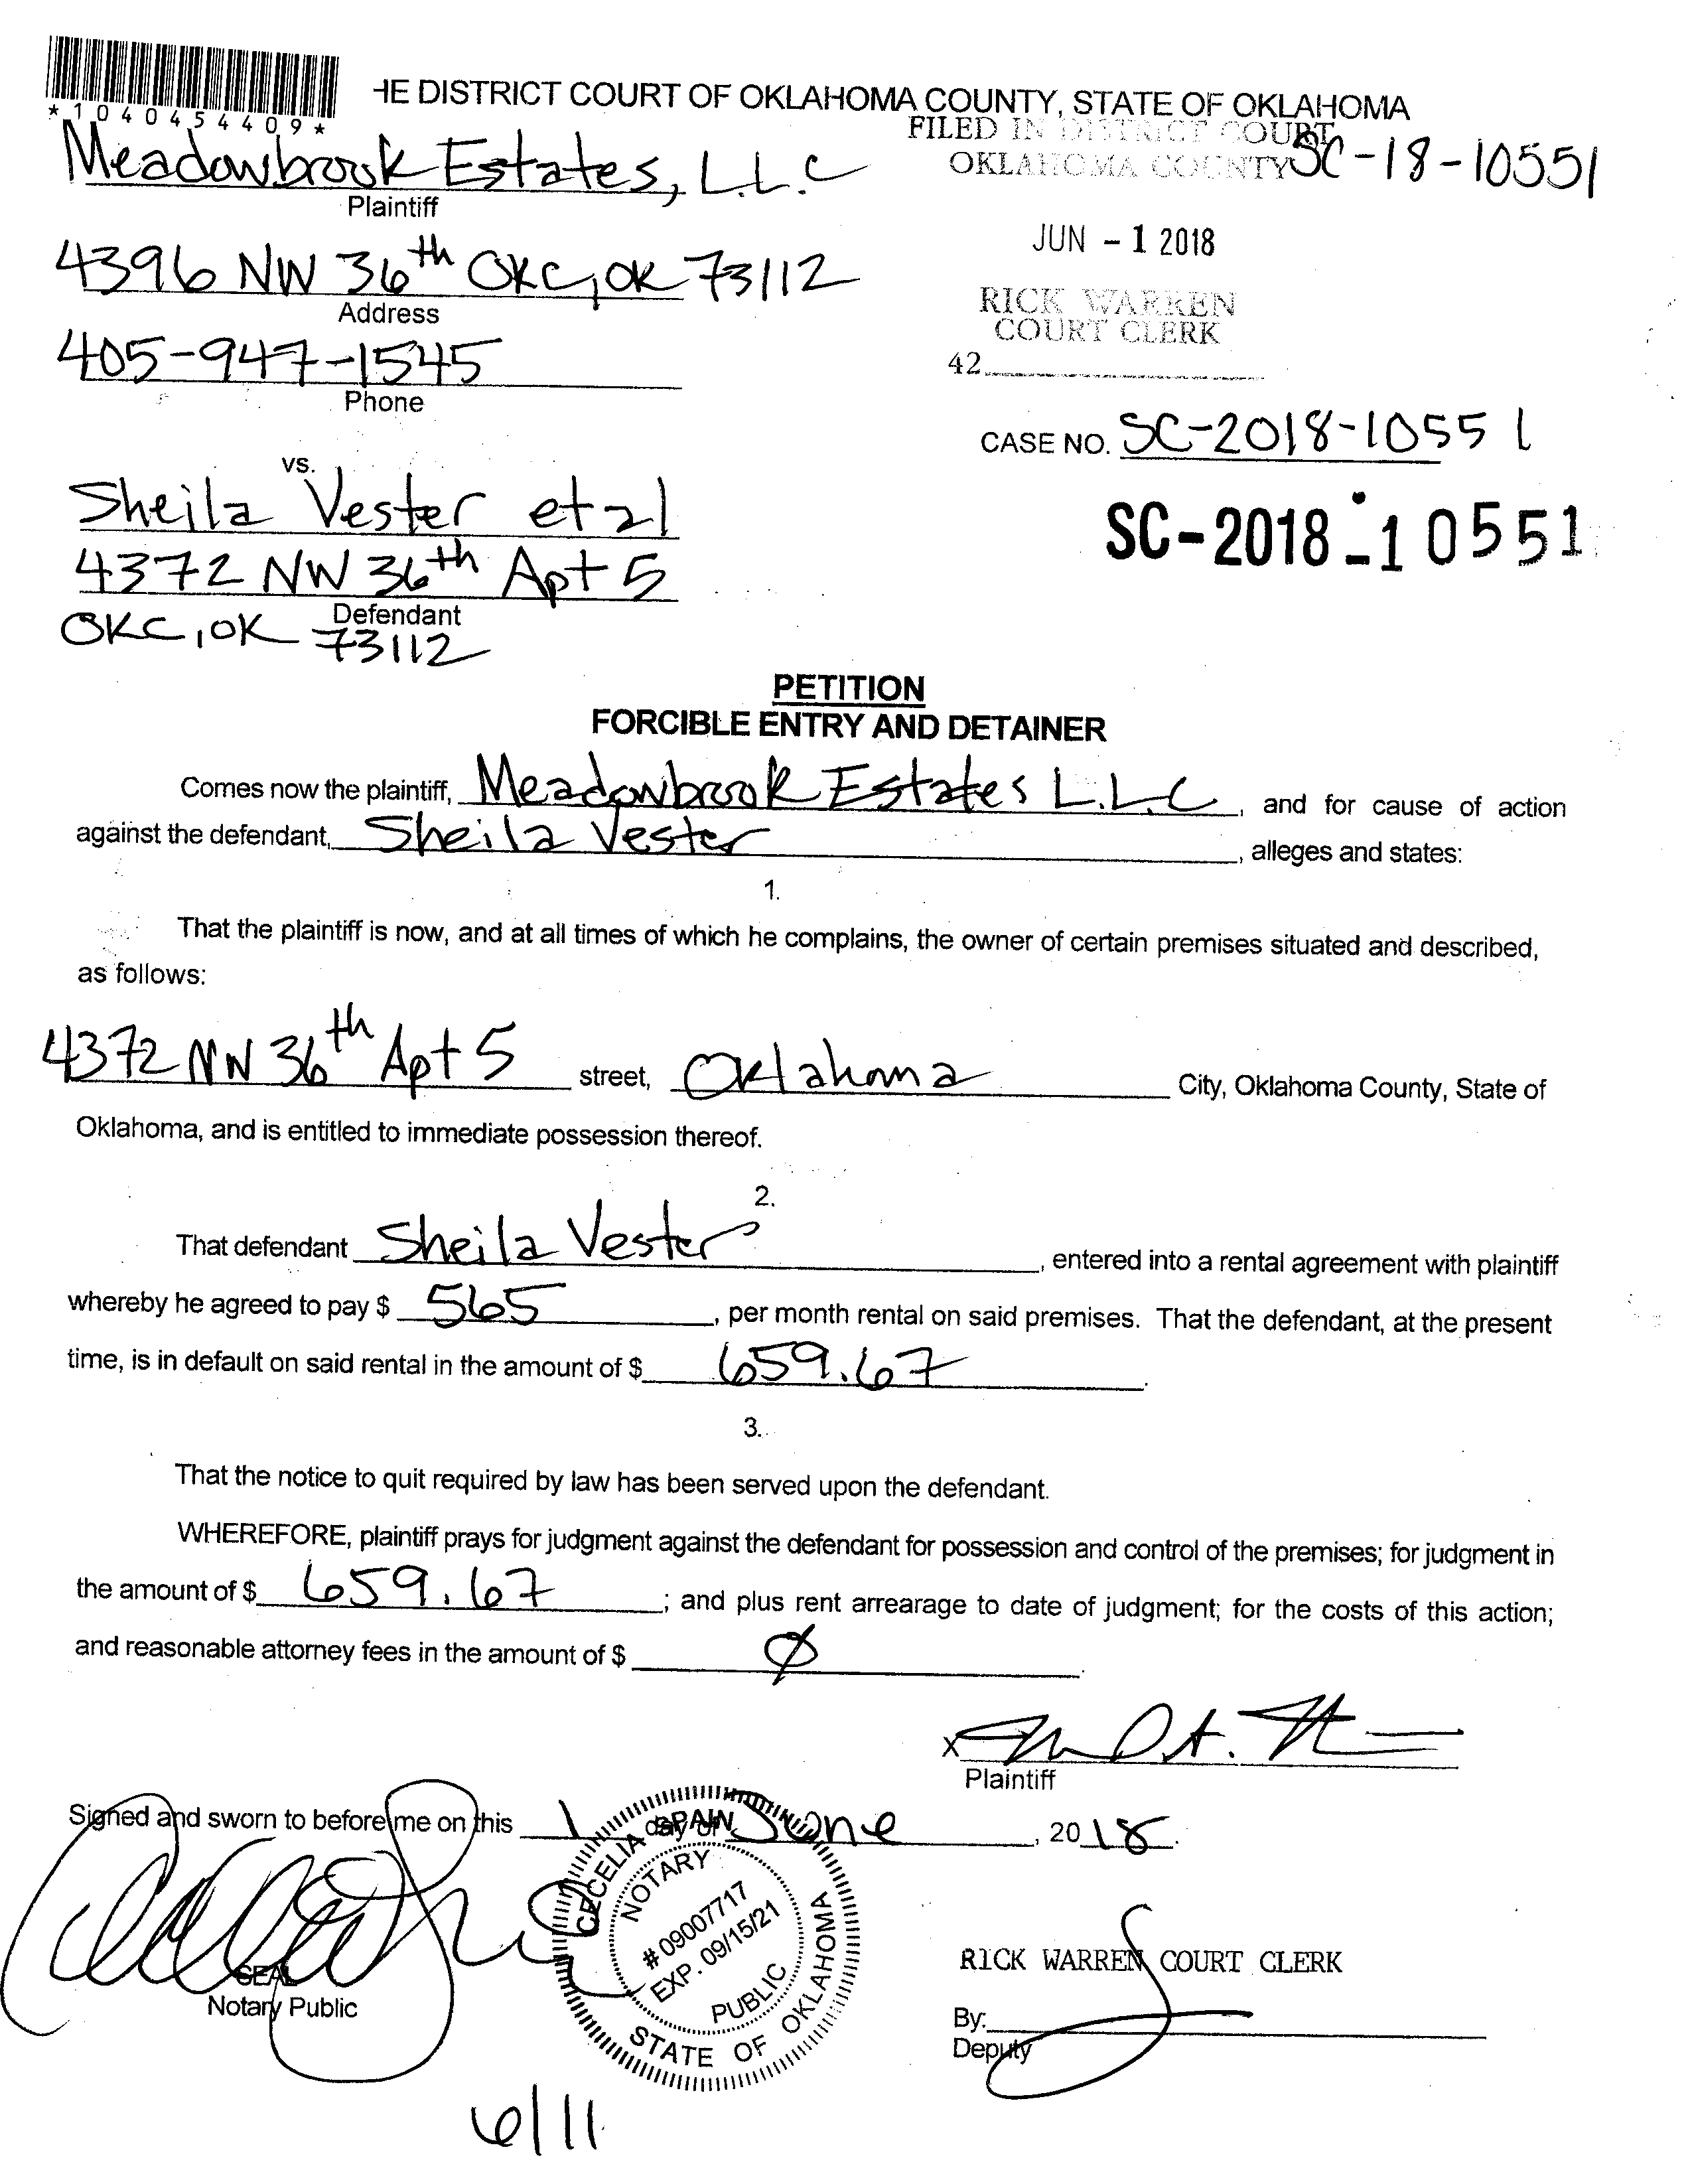 *1040454409*
HE DISTRICT COURT OF OKLAHOMA COUNTY, STATE OF OKLAHOMA
FILED IN DISTRICT COURT
OKLAHOMA COUNTY SC-18-10551
Meadowbrook Estates, L.L.C
Plaintiff
JUN - 1 2018
4396 NW 36th OKC, OK 73112
Address
RICK WARREN
COURT CLERK
42
405-947-1545
Phone
CASE NO. SC-2018-10551
vs.
Sheila Vester et al
SC-2018-10551
4372 NW 36th Apt 5
Defendant
OKC, OK 73112
PETITION
FORCIBLE ENTRY AND DETAINER
Comes now the plaintiff, Meadowbrook Estates L.L.C, and for cause of action
against the defendant, Sheila Vester, alleges and states:
1.
That the plaintiff is now, and at all times of which he complains, the owner of certain premises situated and described,
as follows:
4372 NW 36th Apt 5 street, Oklahoma City, Oklahoma County, State of
Oklahoma, and is entitled to immediate possession thereof.
2.
That defendant Sheila Vester, entered into a rental agreement with plaintiff
whereby he agreed to pay $ 565, per month rental on said premises. That the defendant, at the present
time, is in default on said rental in the amount of $ 659.67.
3.
That the notice to quit required by law has been served upon the defendant.
WHEREFORE, plaintiff prays for judgment against the defendant for possession and control of the premises; for judgment in
the amount of $ 659.67; and plus rent arrearage to date of judgment; for the costs of this action;
and reasonable attorney fees in the amount of $ Ø.
X
Plaintiff
Signed and sworn to before me on this 1 day of June, 2018.
CECELIA SPAIN
NOTARY
# 09007717
EXP. 09/15/21
PUBLIC
STATE OF OKLAHOMA
SEAL
Notary Public
RICK WARREN COURT CLERK
By:
Deputy
6/11